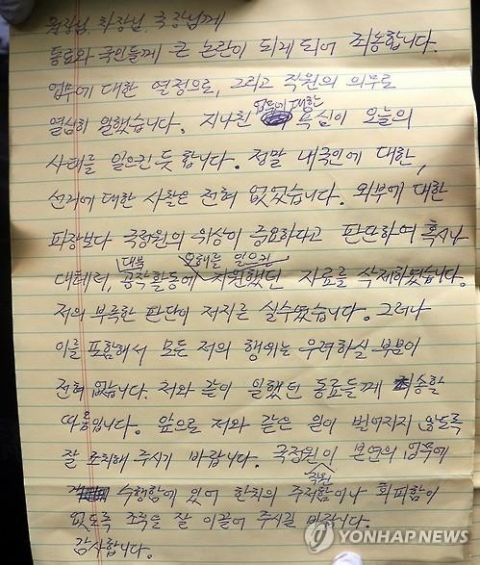 원장님, 차장님, 국장님께
동료와 국민들께 큰 논란이 되게 되어 죄송합니다.
업무에 대한 열정으로, 그리고 직원의 의무로
열심히 일했습니다. 지나친 업무에 대한 욕심이 오늘의
사태를 일으킨 듯 합니다. 정말 내국인에 대한,
선거에 대한 사찰은 전혀 없었습니다. 외부에 대한
파장보다 국정원의 위상이 중요하다고 판단하여 혹시나
대테러, 대북 공작활동에 오해를 일으킨 지원했던 자료를 삭제하였습니다.
저의 부족한 판단이 저지른 실수였습니다. 그러나
이를 포함해서 모든 저의 행위는 우려하실 부분이
전혀 없습니다. 저와 같이 일했던 동료들께 죄송할
따름입니다. 앞으로 저와 같은 일이 벌어지지 않도록
잘 조치해 주시기 바랍니다. 국정원 직원이 본연의 업무에
수행함에 있어 한치의 주저함이나 회피함이
없도록 조직을 잘 이끌어 주시길 바랍니다.
감사합니다.
YONHAPNEWS